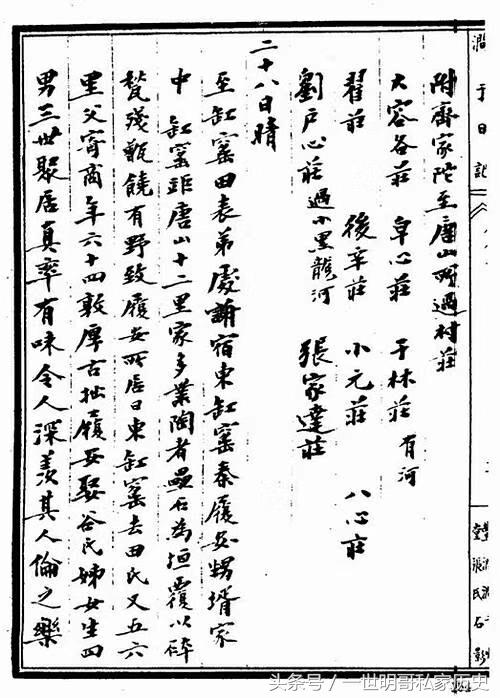 澗于日記
附齊家陀至唐山所過村莊
大容各莊 皁心莊 于林莊 有河
翟莊 後辛莊 小元莊 八心莊
劉戶心莊 過小黑龍河 張家達莊
二十八日晴
至缸窰田表弟處誦宿東缸窰秦履安甥壻家
中缸窰距唐山十二里家多業陶者壘石為垣覆以碎
甃殘甎饒有野致履安所居曰東缸窰去田氏又五六
里父甯商年六十四敦厚古拙履安娶谷氏姊女生四
男三世聚居真率有味令人深羨其人倫之樂
堂張氏石影
头条号 / 一世明哥私家历史